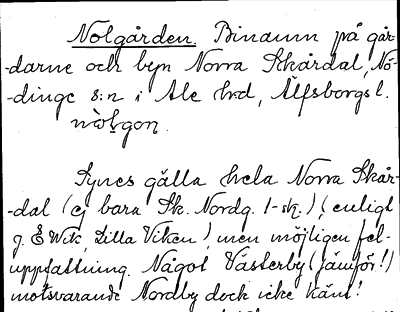 Nolgården. Binamn på går-
-darne och byn Norra Skårdal, Nö-
-dinge s:n i Ale hrd, Älfsborgs l.
nòlgon.
Synes gälla hela Norra Skår-
-dal (ej bara Sk. Nordg. 1-sk.) (enligt
g. Lilla Viken), men möjligen fel-
uppfattning. Något Västerby (jämför!)
motsvarande Nordby dock icke känt!